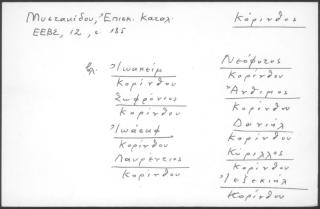 Μυστακίδου, Ἐπισκ. Καταλ.
ΕΕΒΣ, 12, σ. 185
Κόρινθος
βλ. Ἰωακείμ
Κορίνθου
Σωφρόνιος
Κορίνθου
Ἰωάσαφ
Κορίνθου
Λαυρέντιος
Κορίνθου
Νεόφυτος
Κορίνθου
Ἄνθιμος
Κορίνθου
Δανιήλ
Κορίνθου
Κύριλλος
Κορίνθου
Ἰεζεκιήλ
Κορίνθου